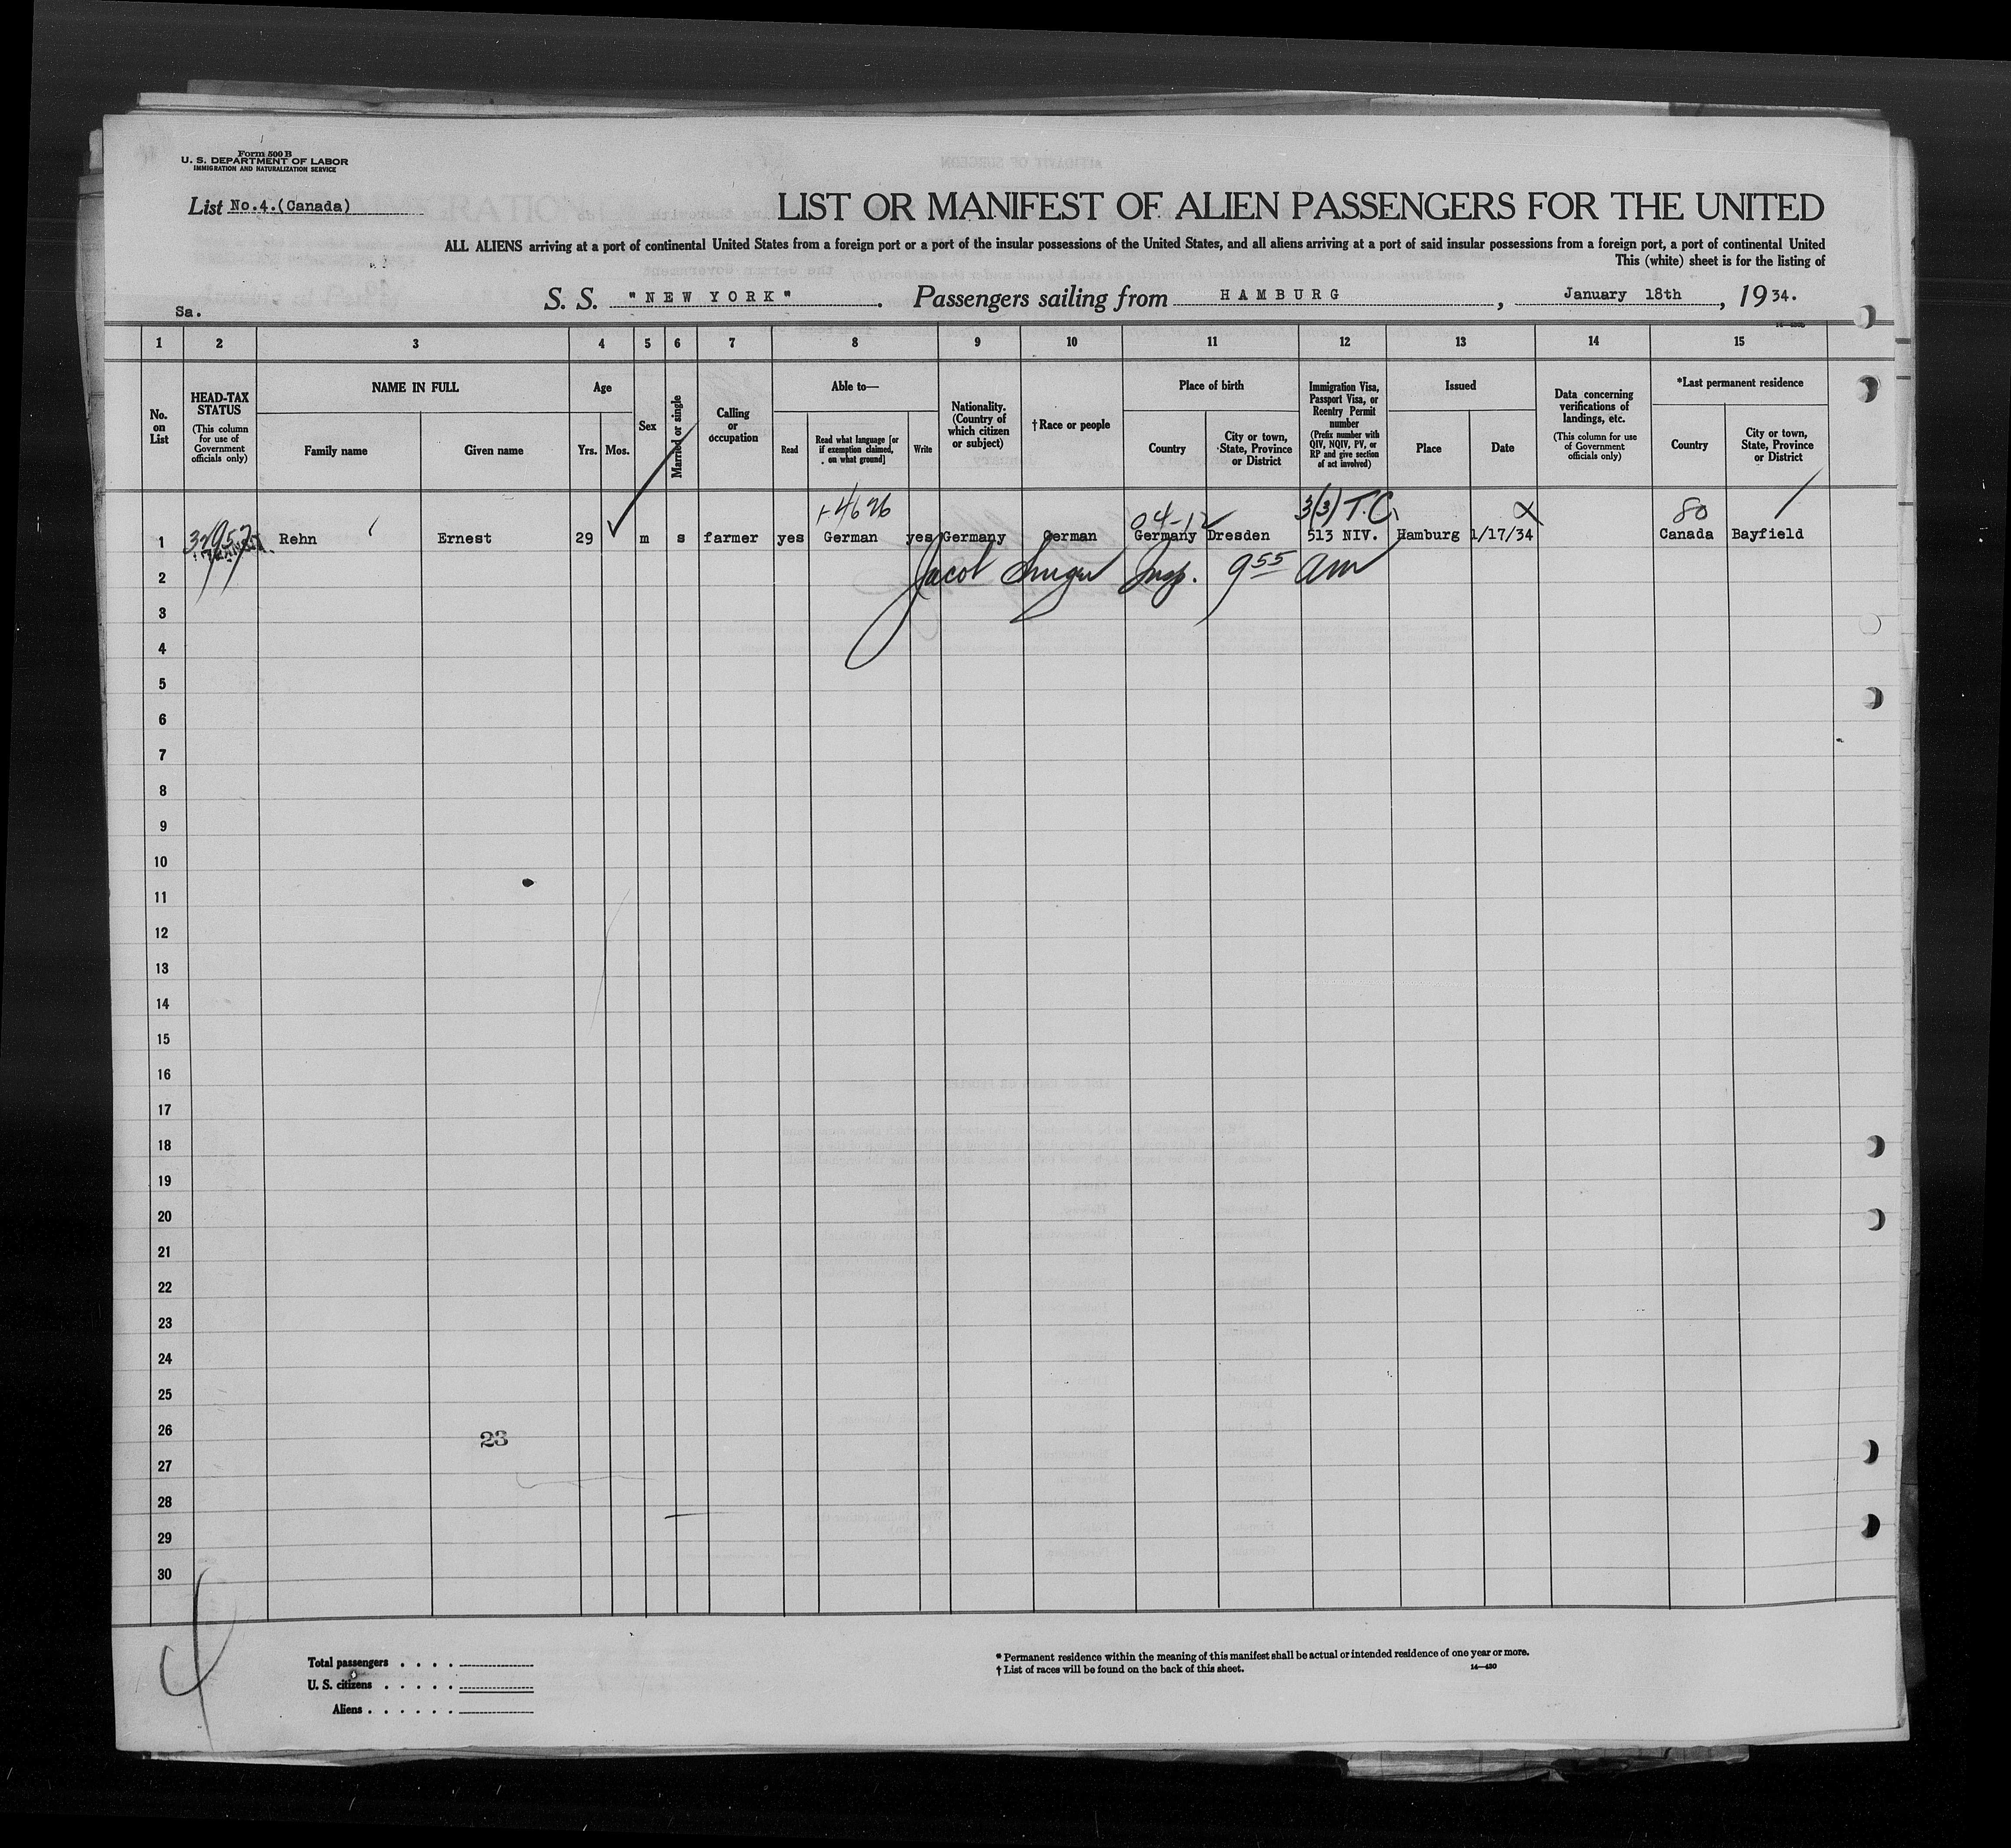 Form 500 B
U. S. DEPARTMENT OF LABOR
IMMIGRATION AND NATURALIZATION SERVICE
List No.4.(Canada)
LIST OR MANIFEST OF ALIEN PASSENGERS FOR THE UNITED
ALL ALIENS arriving at a port of continental United States from a foreign port or a port of the insular possessions of the United States, and all aliens arriving at a port of said insular possessions from a foreign port, a port of continental United
This (white) sheet is for the listing of
Sa.
S. S. "NEW YORK". Passengers sailing from HAMBURG, January 18th, 1934.
1 2 3 4 5 6 7 8 9 10 11 12 13 14 15
No. on List
HEAD-TAX STATUS
(This column for use of Government officials only)
NAME IN FULL
Family name
Given name
Age
Yrs.
Mos.
Sex
Married or single
Calling or occupation
Able to—
Read
Read what language [or if exemption claimed, on what ground]
Write
Nationality. (Country of which citizen or subject)
†Race or people
Place of birth
Country
City or town, State, Province or District
Immigration Visa, Passport Visa, or Reentry Permit number
(Prefix number with QIV, NQIV, PV, or RP and give section of act involved)
Issued
Place
Date
Data concerning verifications of landings, etc.
(This column for use of Government officials only)
*Last permanent residence
Country
City or town, State, Province or District
04-12
3(3) T.C.
80
1 Rehn Ernest 29 m s farmer yes German yes Germany German Germany Dresden 513 NIV. Hamburg 1/17/34 Canada Bayfield
2 Jacob Insp. 9 55 am
3
4
5
6
7
8
9
10
11
12
13
14
15
16
17
18
19
20
21
22
23
24
25
26
23
27
28
29
30
Total passengers . . . .
U. S. citizens . . . . .
Aliens . . . . . .
* Permanent residence within the meaning of this manifest shall be actual or intended residence of one year or more.
† List of races will be found on the back of this sheet.
14—430